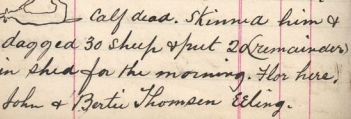 Calf dead. Skinned him &
dagged 30 sheep & put 22 (remainder)
in shed for the morning. Flor here,
John & Bertie Thomsen Eeling.